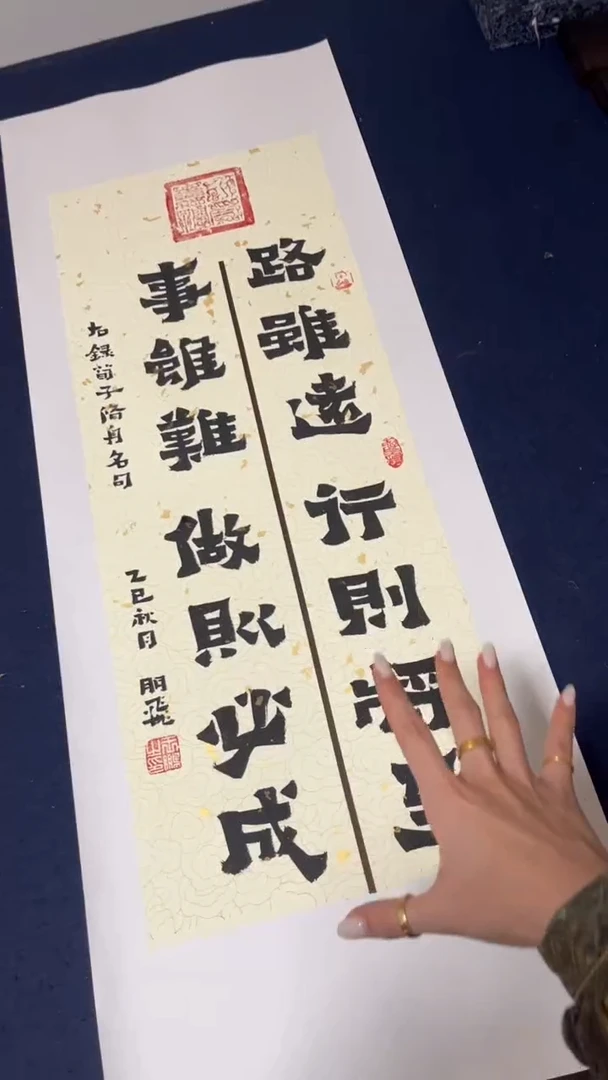 路雖遠行則至
事雖難做則必成
右錄荀子脩身名句
乙巳秋月 朋飛